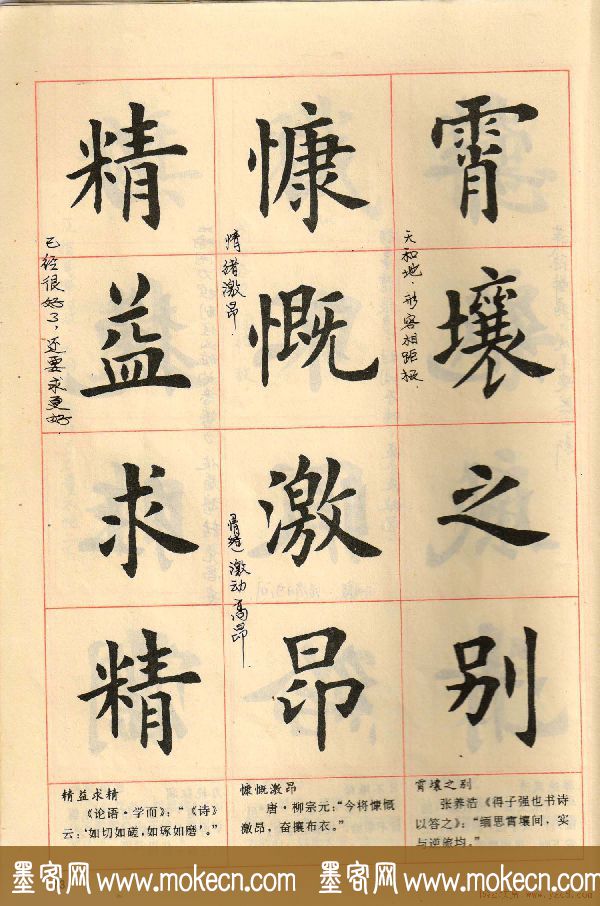 霄壤之别
慷慨激昂
精益求精
天和地．形容相距极
情绪激昂．
激动高昂
已经很好了，还要求更好．
霄壤之别
张养浩《得子强也书诗
以答之》：“缅思霄壤间，实
与逆旅均。”
慷慨激昂
唐·柳宗元：“今将慷慨
激昂，奋攘布衣。”
精益求精
《论语·学而》：“《诗》
云：‘如切如磋，如琢如磨’。”
墨客网 www.mokecn.com 墨客网 www.mokecn.com